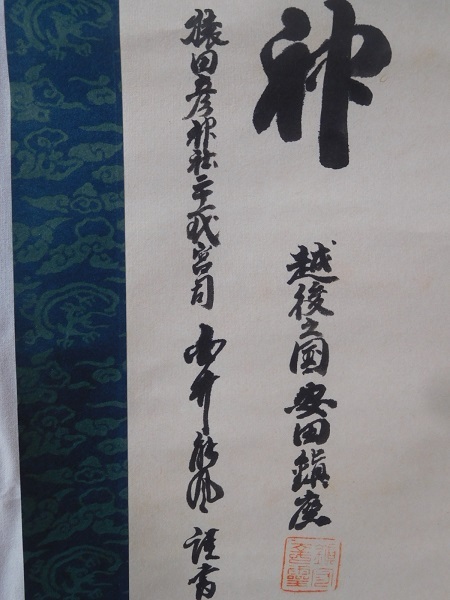 神
越後之国 安田鎮座
猿田彦神社二十代宮司 謹書